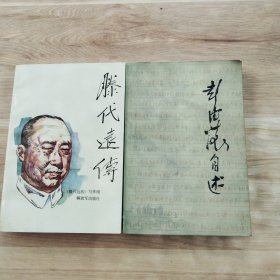 滕代远传
《滕代远传》写作组
解放军出版社
彭德怀自述